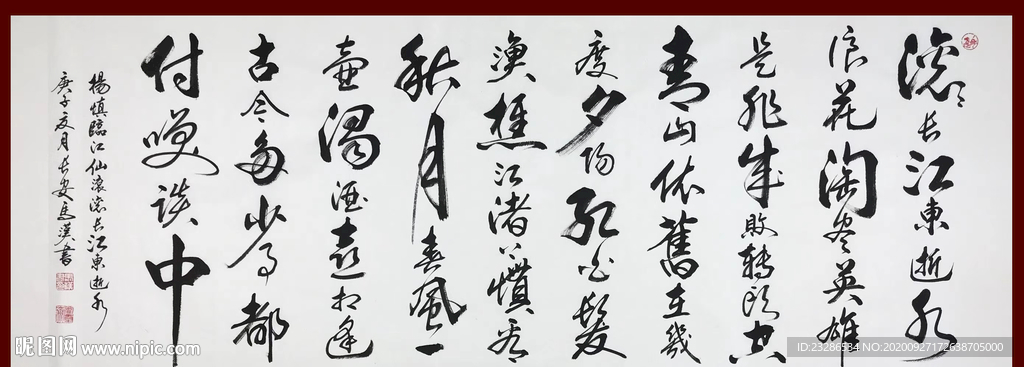 滚滚长江東逝水
浪花淘尽英雄
是非成敗转头空
青山依舊在幾
度夕阳红白髮
渔樵江渚上慣看
秋月春風一
壶濁酒喜相逢
古今多少事都
付笑谈中
楊慎臨江仙滚滚长江東逝水
庚子夏月长安馬漢書
昵图网 www.nipic.com
ID:23286534 NO:20200927172638705000